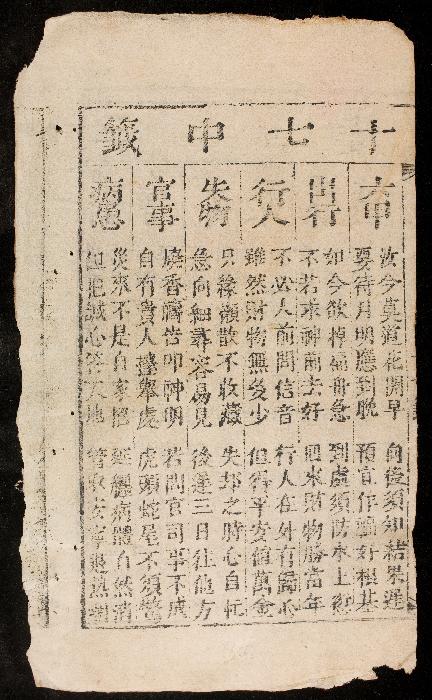 十七中籤
六甲
出行
行人
失物
官事
病患
汝今莫道花開早 自後須知結果遲
要待月明應到晚 預宜作福好根基
如今欲棹福前急 到處須防水上
不若求神前去好 財物勝當年
不必人前問信音 行人在外有歸心
雖然財物無多少 但得平安值萬金
只緣懶散不收藏 失却之時心自忙
急向細尋容易見 後逢三日往他方
燒香禱告叩神明 若問官司事不成
自有貴人擡舉處 虎頭蛇尾不須驚
災來不是自家招 延纏病體自然消
但把誠心答天地 管取安寧退熱潮